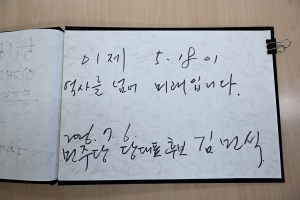 이제 5.18이
역사를 넘어 미래입니다.
2026. 7. 6.
민주당 당대표 후보 김민석